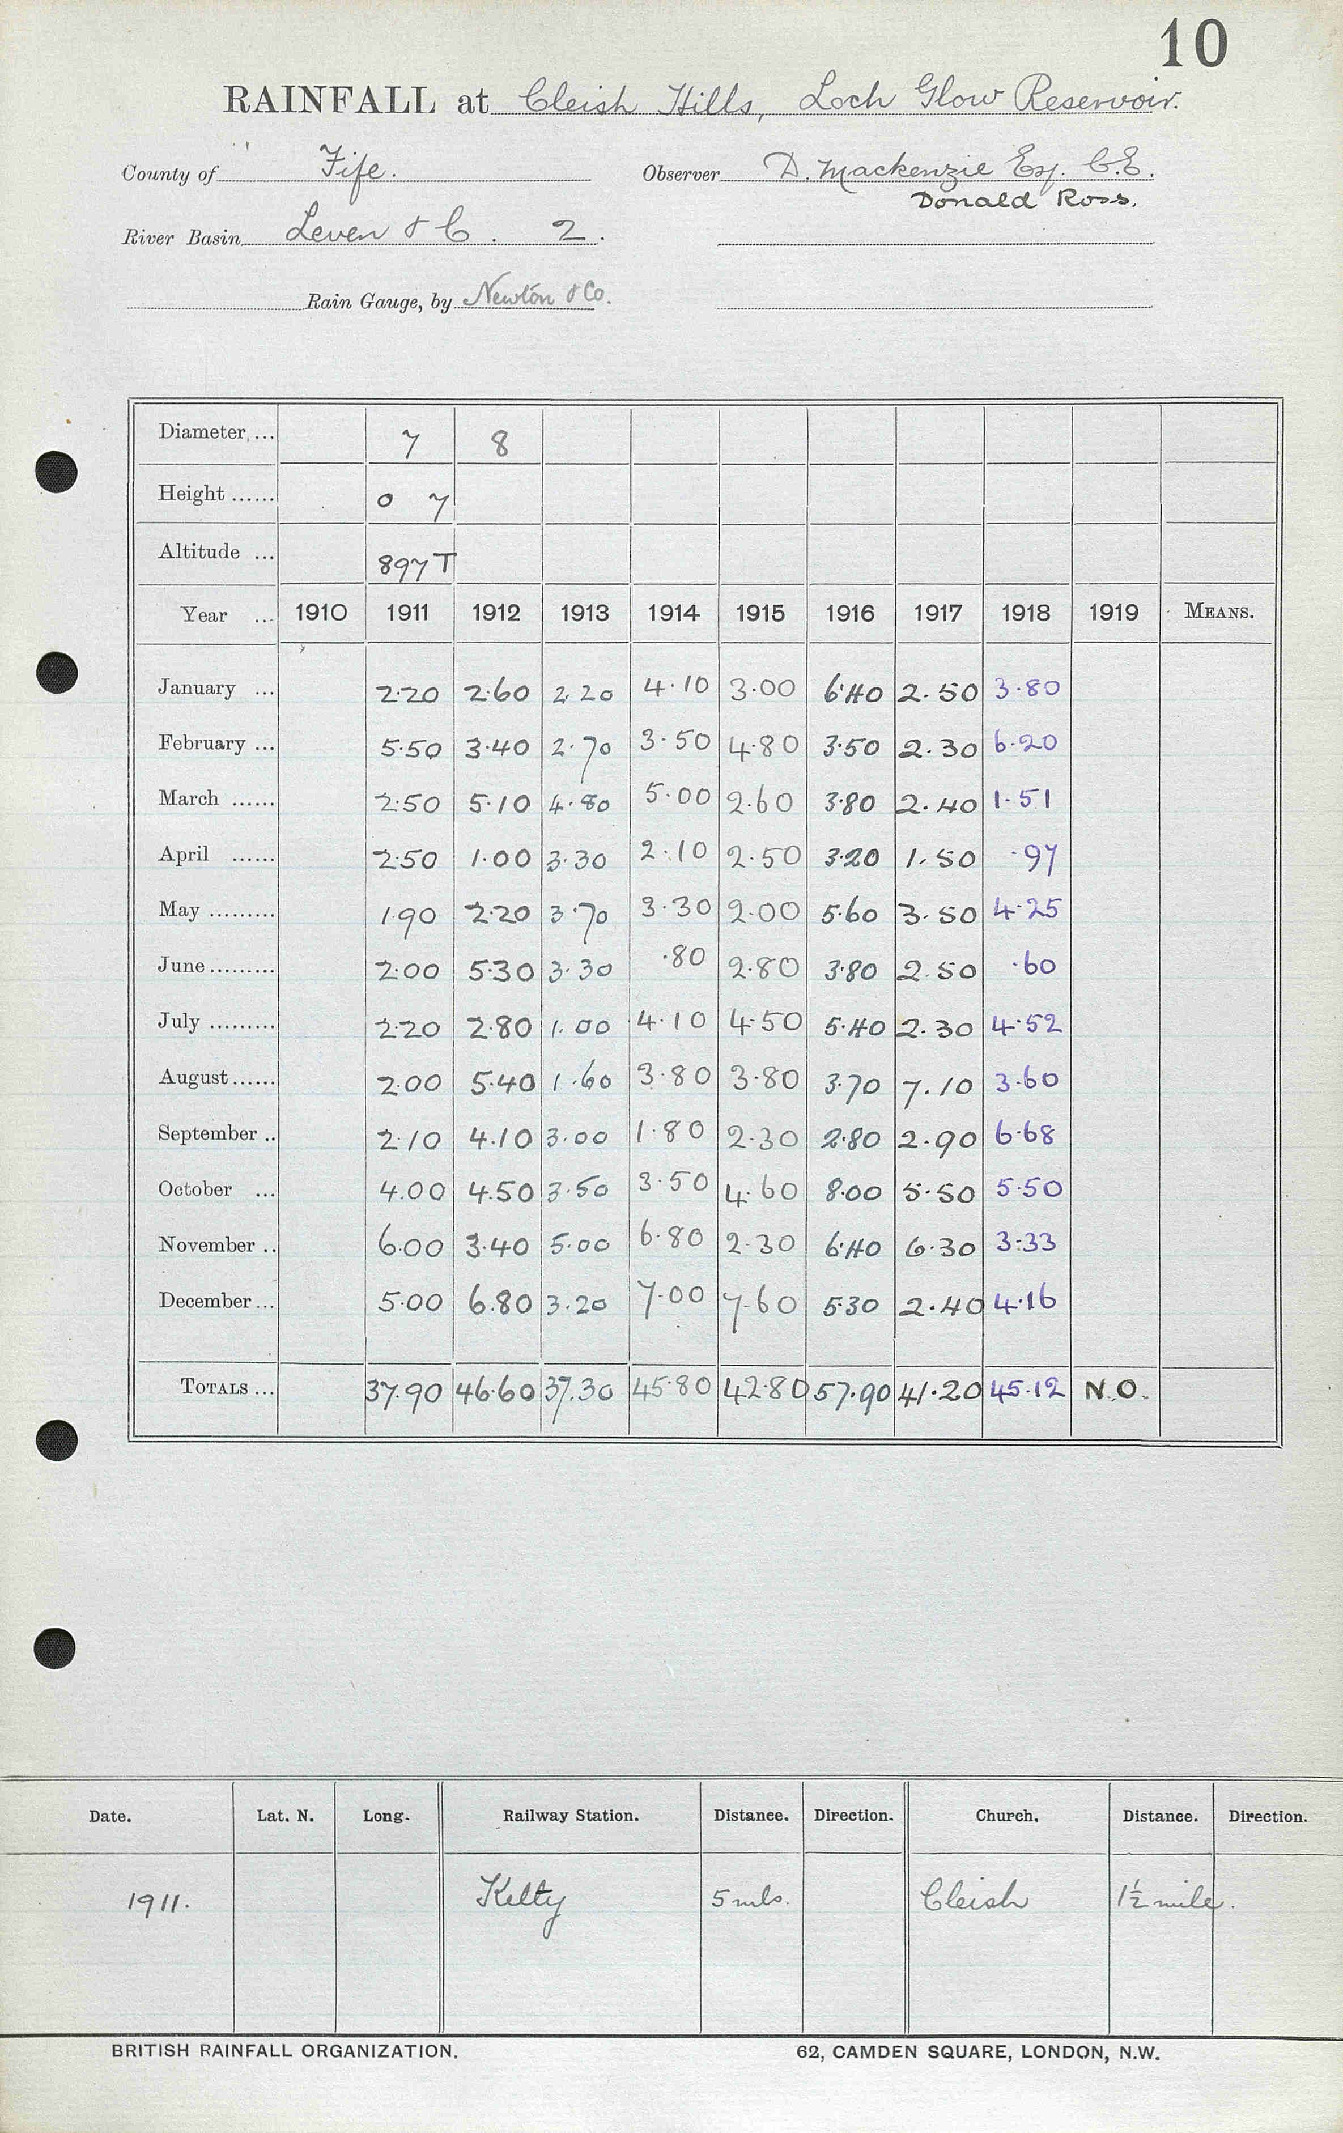 10
RAINFALL at Cleish Hills, Loch Glow Reservoir.
County of Fife. Observer D. Mackenzie Esq. C.E.
Donald Ross.
River Basin Leven & C. 2.
Rain Gauge, by Newton & Co.
Diameter ... 7 8
Height ...... 0 7
Altitude ... 897 T
Year ... 1910 1911 1912 1913 1914 1915 1916 1917 1918 1919 MEANS.
January ... 2.20 2.60 2.20 4.10 3.00 6.40 2.50 3.80
February ... 5.50 3.40 2.70 3.50 4.80 3.50 2.30 6.20
March ...... 2.50 5.10 4.80 5.00 2.60 3.80 2.40 1.51
April ...... 2.50 1.00 3.30 2.10 2.50 3.20 1.50 .97
May ......... 1.90 2.20 3.70 3.30 2.00 5.60 3.50 4.25
June ......... 2.00 5.30 3.30 .80 2.80 3.80 2.50 .60
July ......... 2.20 2.80 1.00 4.10 4.50 5.40 2.30 4.52
August ...... 2.00 5.40 1.60 3.80 3.80 3.70 7.10 3.60
September .. 2.10 4.10 3.00 1.80 2.30 2.80 2.90 6.68
October ... 4.00 4.50 3.50 3.50 4.60 8.00 5.50 5.50
November .. 6.00 3.40 5.00 6.80 2.30 6.40 6.30 3.33
December ... 5.00 6.80 3.20 7.00 7.60 5.30 2.40 4.16
TOTALS ... 37.90 46.60 37.30 45.80 42.80 57.90 41.20 45.12 N.O.
Date. Lat. N. Long. Railway Station. Distance. Direction. Church. Distance. Direction.
1911. Kelty 5 mls. Cleish 1½ mile.
BRITISH RAINFALL ORGANIZATION. 62, CAMDEN SQUARE, LONDON, N.W.